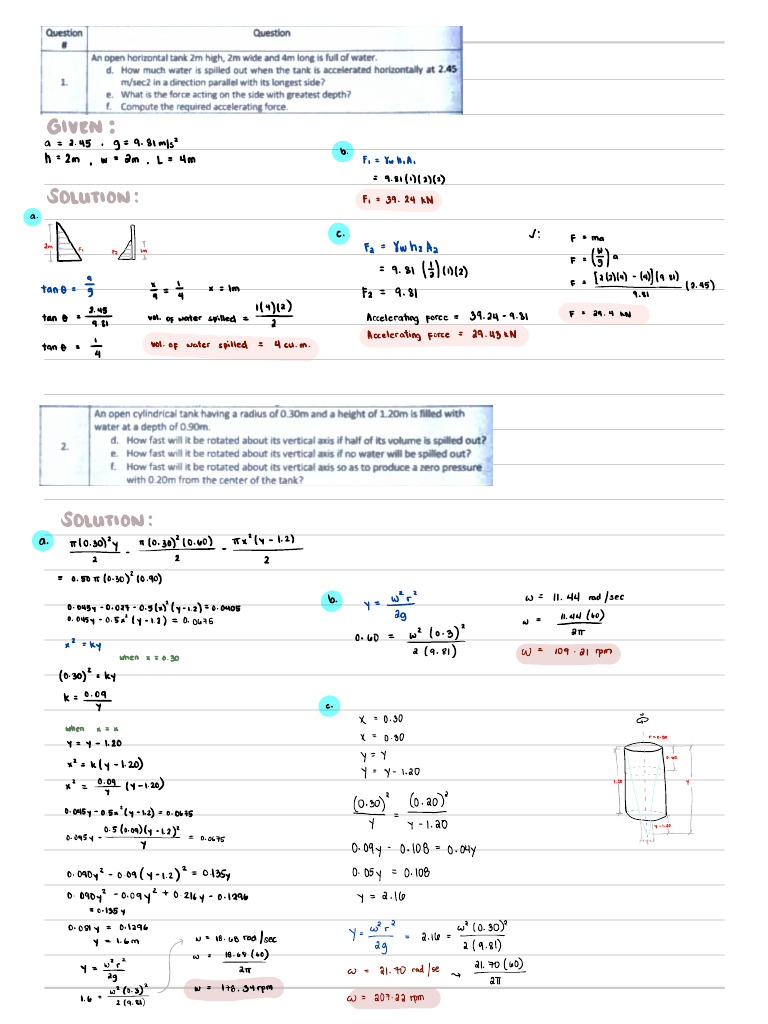 Question # Question
1.
An open horizontal tank 2m high, 2m wide and 4m long is full of water.
d. How much water is spilled out when the tank is accelerated horizontally at 2.45
m/sec2 in a direction parallel with its longest side?
e. What is the force acting on the side with greatest depth?
f. Compute the required accelerating force.
GIVEN:
a = 2.45 , g = 9.81 m/s²
h = 2m , w = 2m , L = 4m
SOLUTION:
a.
2m F₁ F₂ 1m
tan θ = a/g
x/4 = 1/4 x = 1m
tan θ = 2.45/9.81
vol. of water spilled = 1(4)(2)/2
tan θ = 1/4
vol. of water spilled = 4 cu.m.
b.
F₁ = γw h₁ A₁
= 9.81 (1)(2)(2)
F₁ = 39.24 kN
c.
F₂ = γw h₂ A₂
= 9.81 (1/2)(1)(2)
F₂ = 9.81
Accelerating force = 39.24 - 9.81
Accelerating force = 29.43 kN
√:
F = ma
F = (W/g) a
F = [2(2)(4) - (4)](9.81)/9.81 (2.45)
F = 29.4 kN
2.
An open cylindrical tank having a radius of 0.30m and a height of 1.20m is filled with
water at a depth of 0.90m.
d. How fast will it be rotated about its vertical axis if half of its volume is spilled out?
e. How fast will it be rotated about its vertical axis if no water will be spilled out?
f. How fast will it be rotated about its vertical axis so as to produce a zero pressure
with 0.20m from the center of the tank?
SOLUTION:
a.
π(0.30)²y/2 - π(0.30)²(0.60)/2 - πx²(y-1.2)/2
= 0.50 π (0.30)² (0.90)
0.045y - 0.027 - 0.5(x)²(y-1.2) = 0.0405
0.045y - 0.5x²(y-1.2) = 0.0675
x² = ky
when x = 0.30
(0.30)² = ky
k = 0.09/y
when x = x
y = y - 1.20
x² = k(y-1.20)
x² = 0.09/y (y-1.20)
0.045y - 0.5x²(y-1.2) = 0.0675
0.045y - 0.5(0.09)(y-1.2)²/y = 0.0675
0.090y² - 0.09(y-1.2)² = 0.135y
0.090y² - 0.09y² + 0.216y - 0.1296
= 0.135y
0.081y = 0.1296
y = 1.6m
y = ω²r²/2g
1.6 = ω²(0.3)²/2(9.81)
ω = 18.68 rad/sec
ω = 18.68(60)/2π
ω = 178.34 rpm
b.
y = ω²r²/2g
0.60 = ω²(0.3)²/2(9.81)
ω = 11.44 rad/sec
ω = 11.44(60)/2π
ω = 109.21 rpm
c.
x = 0.30
x = 0.20
y = y
y = y - 1.20
(0.30)²/y = (0.20)²/y-1.20
0.09y - 0.108 = 0.04y
0.05y = 0.108
y = 2.16
y = ω²r²/2g = 2.16 = ω²(0.30)²/2(9.81)
ω = 21.70 rad/se → 21.70(60)/2π
ω = 207.22 rpm
r = 0.30
0.60
1.20
y
y-1.20